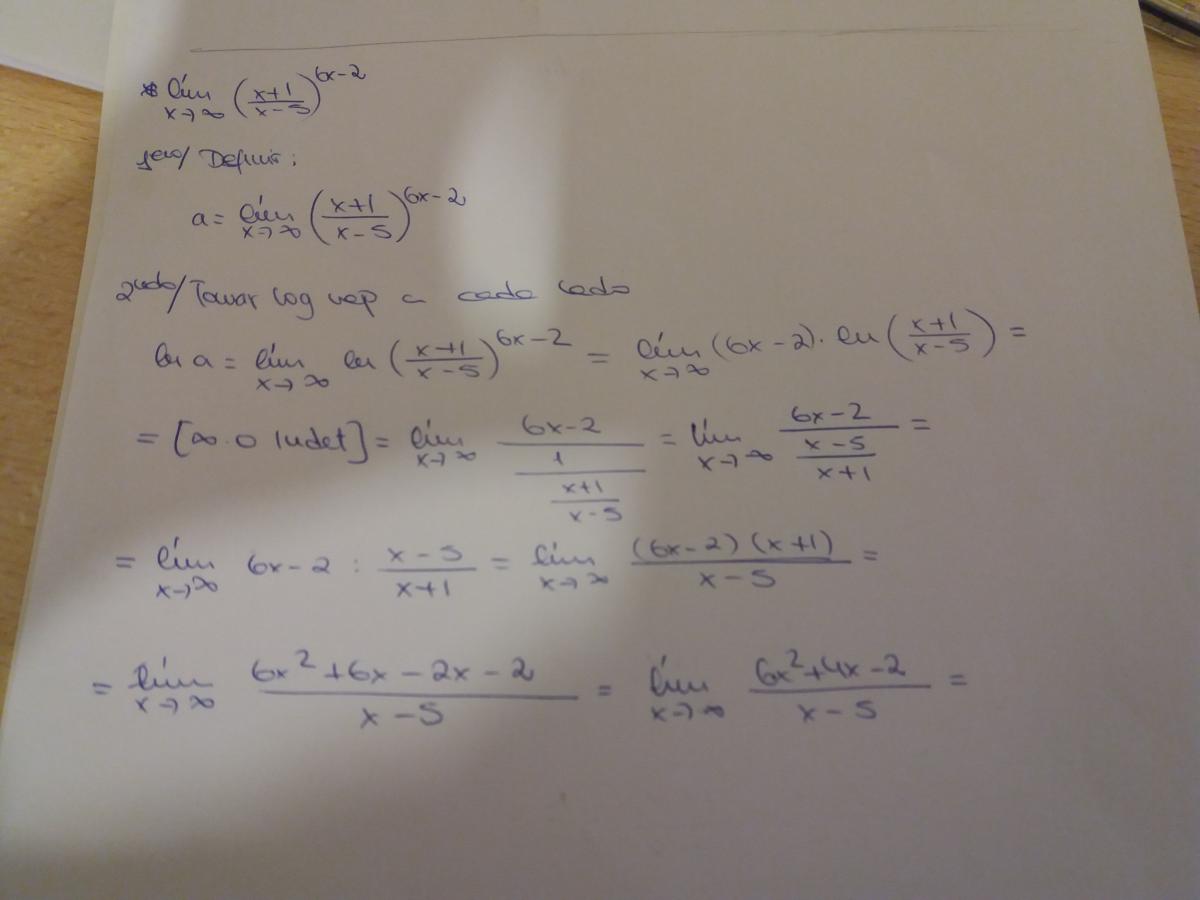 * lím x→∞ (x+1/x-5)^6x-2
1ero/ Definir:
a = lím x→∞ (x+1/x-5)^6x-2
2ndo/ Tomar log nep a cada lado
ln a = lím x→∞ ln (x+1/x-5)^6x-2 = lím x→∞ (6x-2) · ln (x+1/x-5) =
= [∞ · 0 Indet] = lím x→∞ 6x-2/(1/(x+1/x-5)) = lím x→∞ 6x-2/(x-5/x+1) =
= lím x→∞ 6x-2 : x-5/x+1 = lím x→∞ (6x-2)(x+1)/x-5 =
= lím x→∞ 6x²+6x-2x-2/x-5 = lím x→∞ 6x²+4x-2/x-5 =